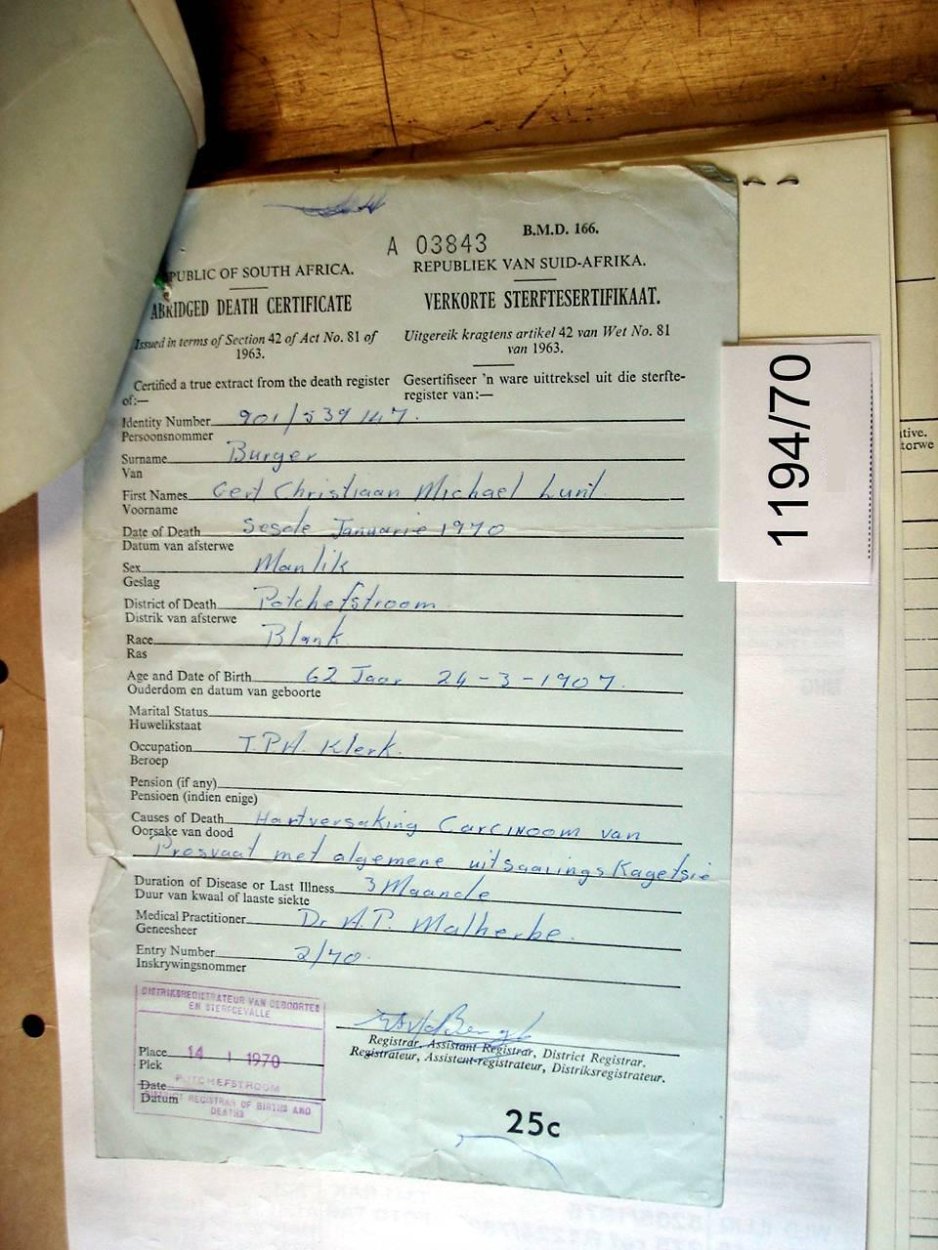 A 03843
B.M.D. 166.
PUBLIC OF SOUTH AFRICA.
REPUBLIEK VAN SUID-AFRIKA.
ABRIDGED DEATH CERTIFICATE
VERKORTE STERFTESERTIFIKAAT.
Issued in terms of Section 42 of Act No. 81 of
1963.
Uitgereik kragtens artikel 42 van Wet No. 81
van 1963.
Certified a true extract from the death register
of:—
Gesertifiseer 'n ware uittreksel uit die sterfte-
register van:—
Identity Number 901/539147.
Persoonsnommer
Surname Burger
Van
First Names Gert Christiaan Michael Lunt
Voorname
Date of Death Sesde Januarie 1970
Datum van afsterwe
Sex Manlik
Geslag
District of Death Potchefstroom
Distrik van afsterwe
Race Blank
Ras
Age and Date of Birth 62 Jaar 24-3-1907.
Ouderdom en datum van geboorte
Marital Status
Huwelikstaat
Occupation T.P.A. Klerk.
Beroep
Pension (if any)
Pensioen (indien enige)
Causes of Death Hartversaking Carcinoom van
Oorsake van dood
met algemene uitsaaiings
Duration of Disease or Last Illness 3 Maande
Duur van kwaal of laaste siekte
Medical Practitioner Dr A.P. Malherbe.
Geneesheer
Entry Number 2/70.
Inskrywingsnommer
DISTRIKSREGISTRATEUR VAN GEBOORTES
EN STERFGEVALLE
Place 14 1 1970
Plek
Date POTCHEFSTROOM
Datum
DISTRICT REGISTRAR OF BIRTHS AND
DEATHS
Registrar, Assistant Registrar, District Registrar.
Registrateur, Assistent-registrateur, Distriksregistrateur.
25c
1194/70
tive.
torwe